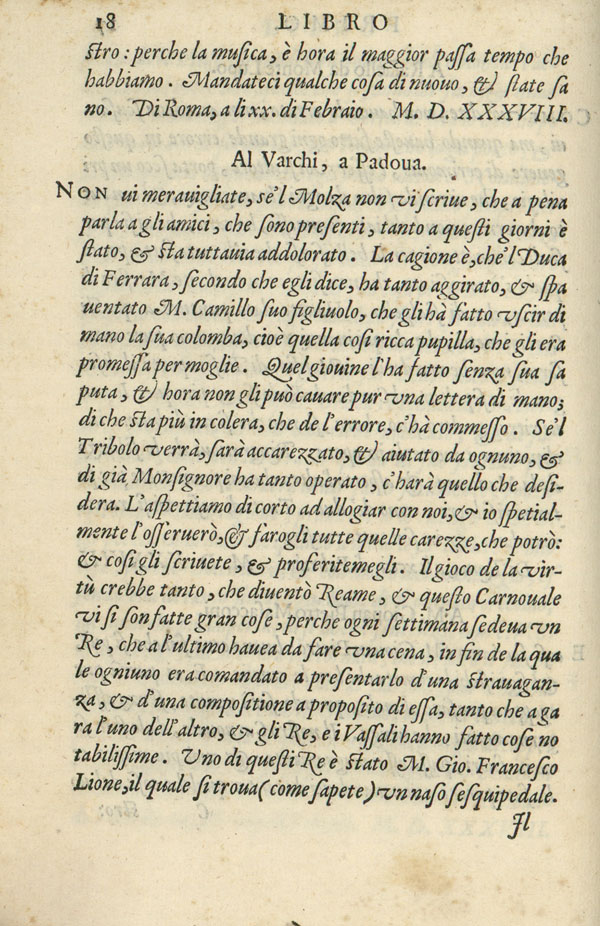 18 LIBRO
stro : perche la musica, è hora il maggior passa tempo che
habbiamo. Mandateci qualche cosa di nuouo, & state sa
no. Di Roma, a li xx. di Febraio. M. D. XXXVIII.
Al Varchi, a Padoua.
NON ui merauigliate, se'l Molza non vi scriue, che a pena
parla a gli amici, che sono presenti, tanto a questi giorni è
stato, & sta tuttauia addolorato. La cagione è, che'l Duca
di Ferrara, secondo che egli dice, ha tanto aggirato, & spa
uentato M. Camillo suo figliuolo, che gli hà fatto vscir di
mano la sua colomba, cioè quella cosi ricca pupilla, che gli era
promessa per moglie. Quel giouine l'ha fatto senza sua sa
puta, & hora non gli può cauare pur vna lettera di mano;
di che sta più in colera, che de l'errore, c'hà commesso. Se'l
Tribolo verrà, sarà accarezzato, & aiutato da ognuno, &
di già Monsignore ha tanto operato, c'harà quello che desi-
dera. L'aspettiamo di corto ad allogiar con noi, & io spetial-
mente l'osseruerò, & farogli tutte quelle carezze, che potrò:
& cosi gli scriuete, & proferitemegli. Il gioco de la vir-
tù crebbe tanto, che diuentò Reame, & questo Carnouale
vi si son fatte gran cose, perche ogni settimana sedeua vn
Re, che a l'ultimo hauea da fare vna cena, in fin de la qua
le ogniuno era comandato a presentarlo d'una strauagan-
za, & d'una compositione a proposito di essa, tanto che a ga
ra l'uno dell'altro, & gli Re, e i Vassali hanno fatto cose no
tabilissime. Uno di questi Re è stato M. Gio. Francesco
Lione, il quale si troua (come sapete) vn naso sesquipedale.
Il